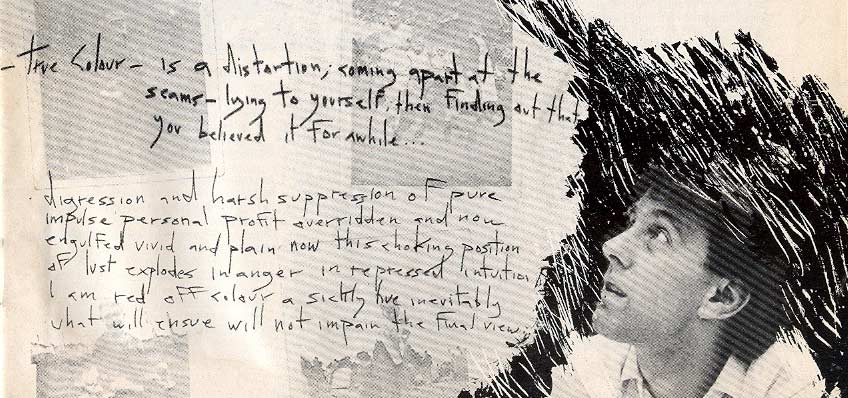 - True Colour - is a distortion; coming apart at the
seams - lying to yourself, then finding out that
you believed it for awhile...
digression and harsh suppression of pure
impulse personal profit overridden and now
engulfed vivid and plain now this choking position
of lust explodes in anger in repressed intuition
I am red off colour a sickly hue inevitably
what will ensue will not impair the final view...